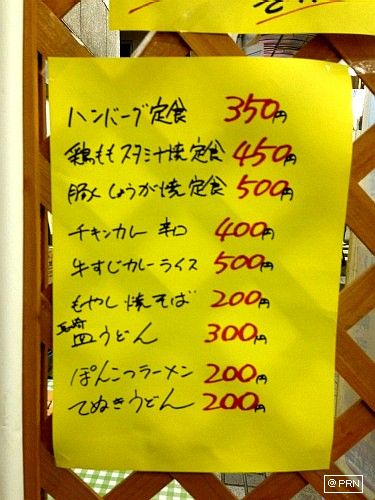 ハンバーグ定食 350円
鶏ももスタミナ焼定食 450円
豚しょうが焼定食 500円
チキンカレー 辛口 400円
牛すじカレーライス 500円
もやし焼そば 200円
皿うどん 300円
ぽんこつラーメン 200円
てぬきうどん 200円
@PRN